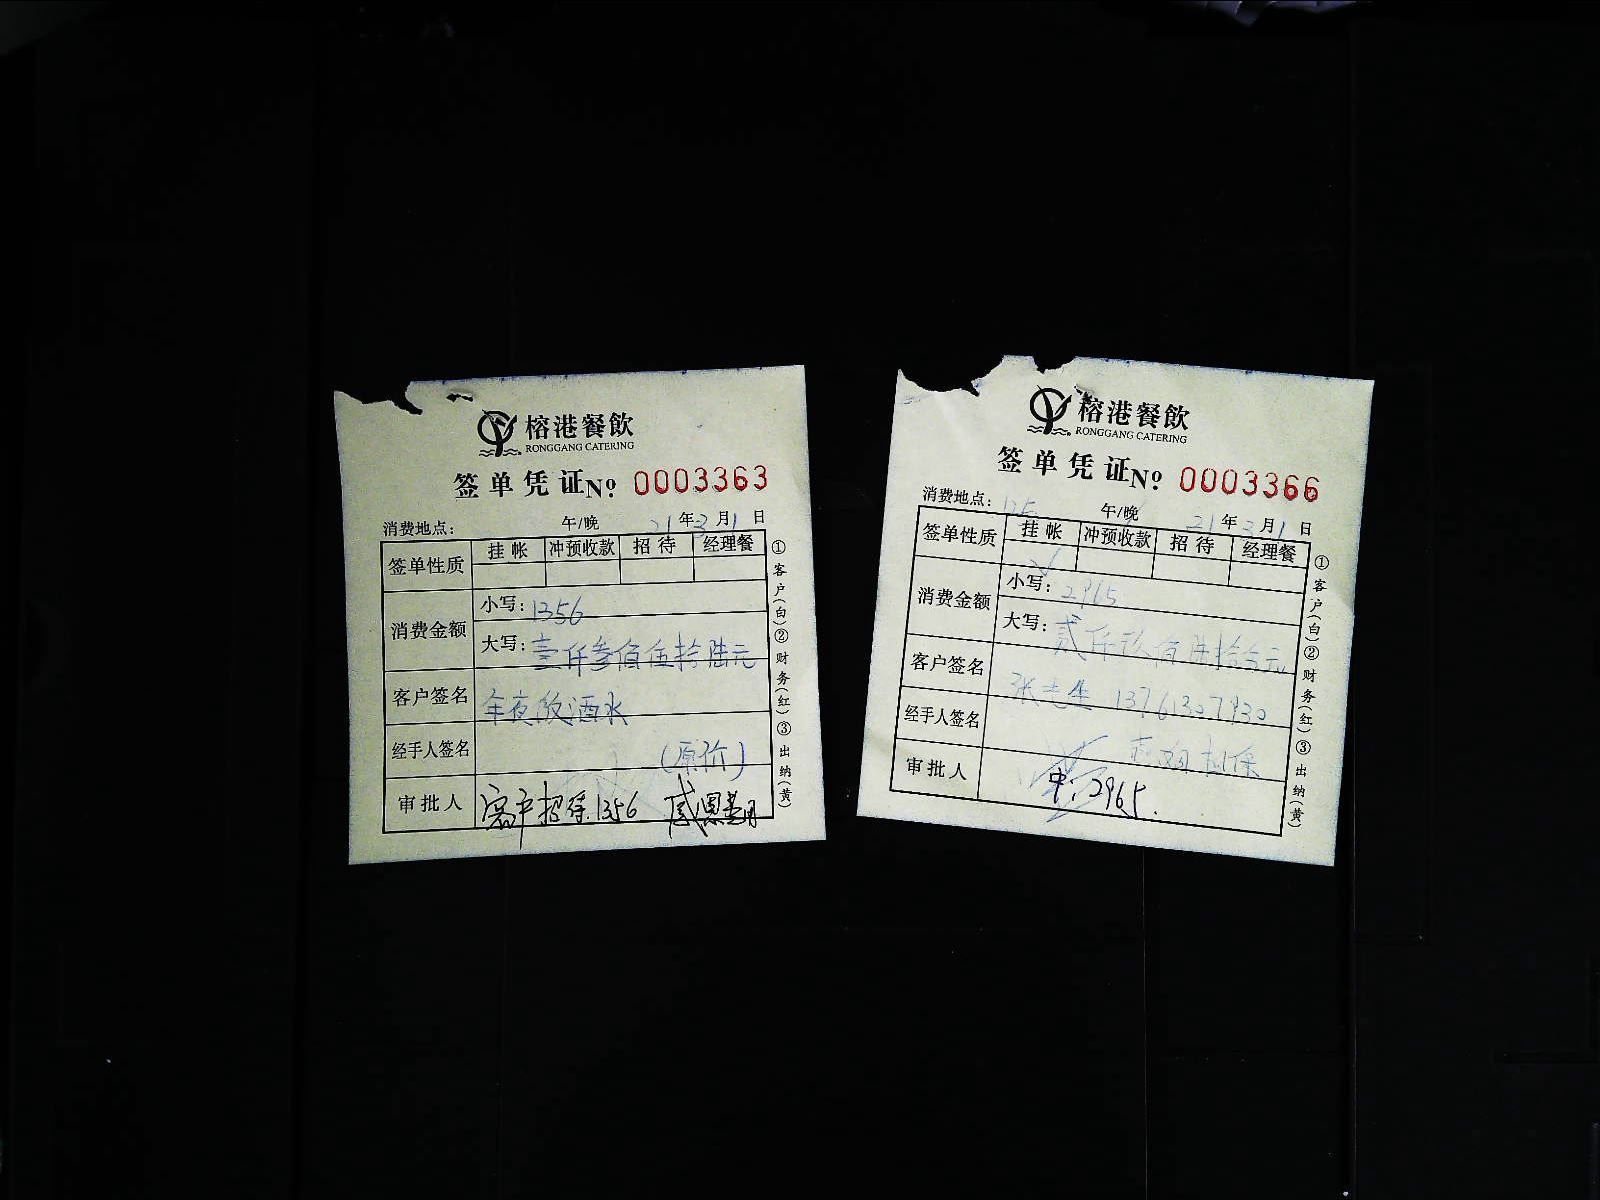 榕港餐飲
RONGGANG CATERING
签单凭证 Nº 0003363
消费地点: 午/晚 21年2月1日
签单性质 挂帐 冲预收款 招待 经理餐
消费金额 小写: 1356
大写: 壹仟参佰伍拾陆元
客户签名 年夜饭酒水
经手人签名 (原价)
审批人 客户招待1356
①客户(白)②财务(红)③出纳(黄)
榕港餐飲
RONGGANG CATERING
签单凭证 Nº 0003366
消费地点: 125 午/晚 21年2月1日
签单性质 挂帐 冲预收款 招待 经理餐
✓
消费金额 小写: 2965
大写: 贰仟玖佰陆拾五元
客户签名 张先生 13761307930
经手人签名
审批人 中: 2965.
①客户(白)②财务(红)③出纳(黄)